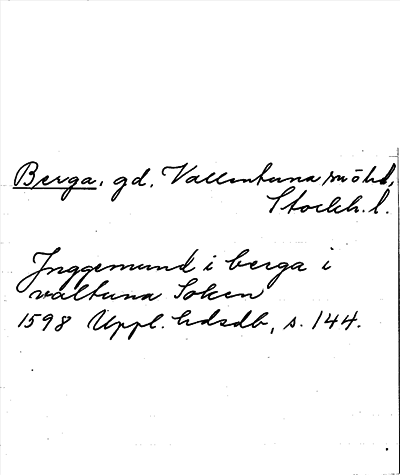 Berga, gd, Vallentuna sn o hd,
Stockh. l.
Inggemund i berga i
valtuna Soken
1598 Uppl. hdsdb, s. 144.